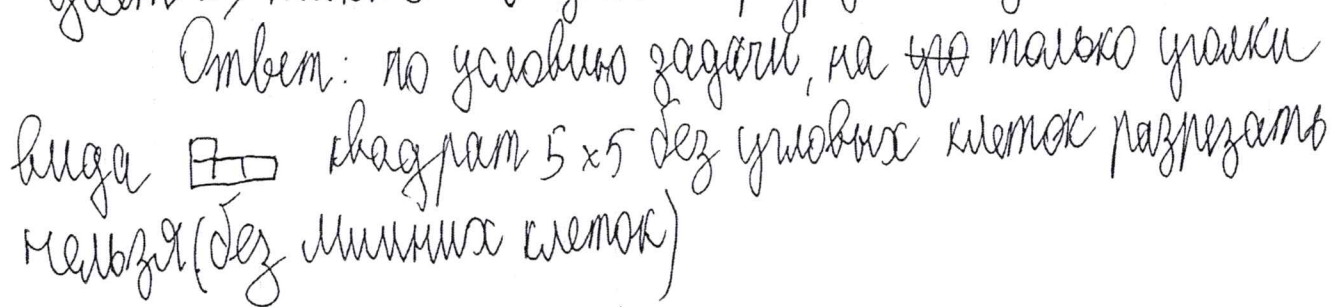 Ответ: по условию задачи, на уго только уголки
вида квадрат 5х5 без угловых клеток разрезать
нельзя (без лишних клеток)